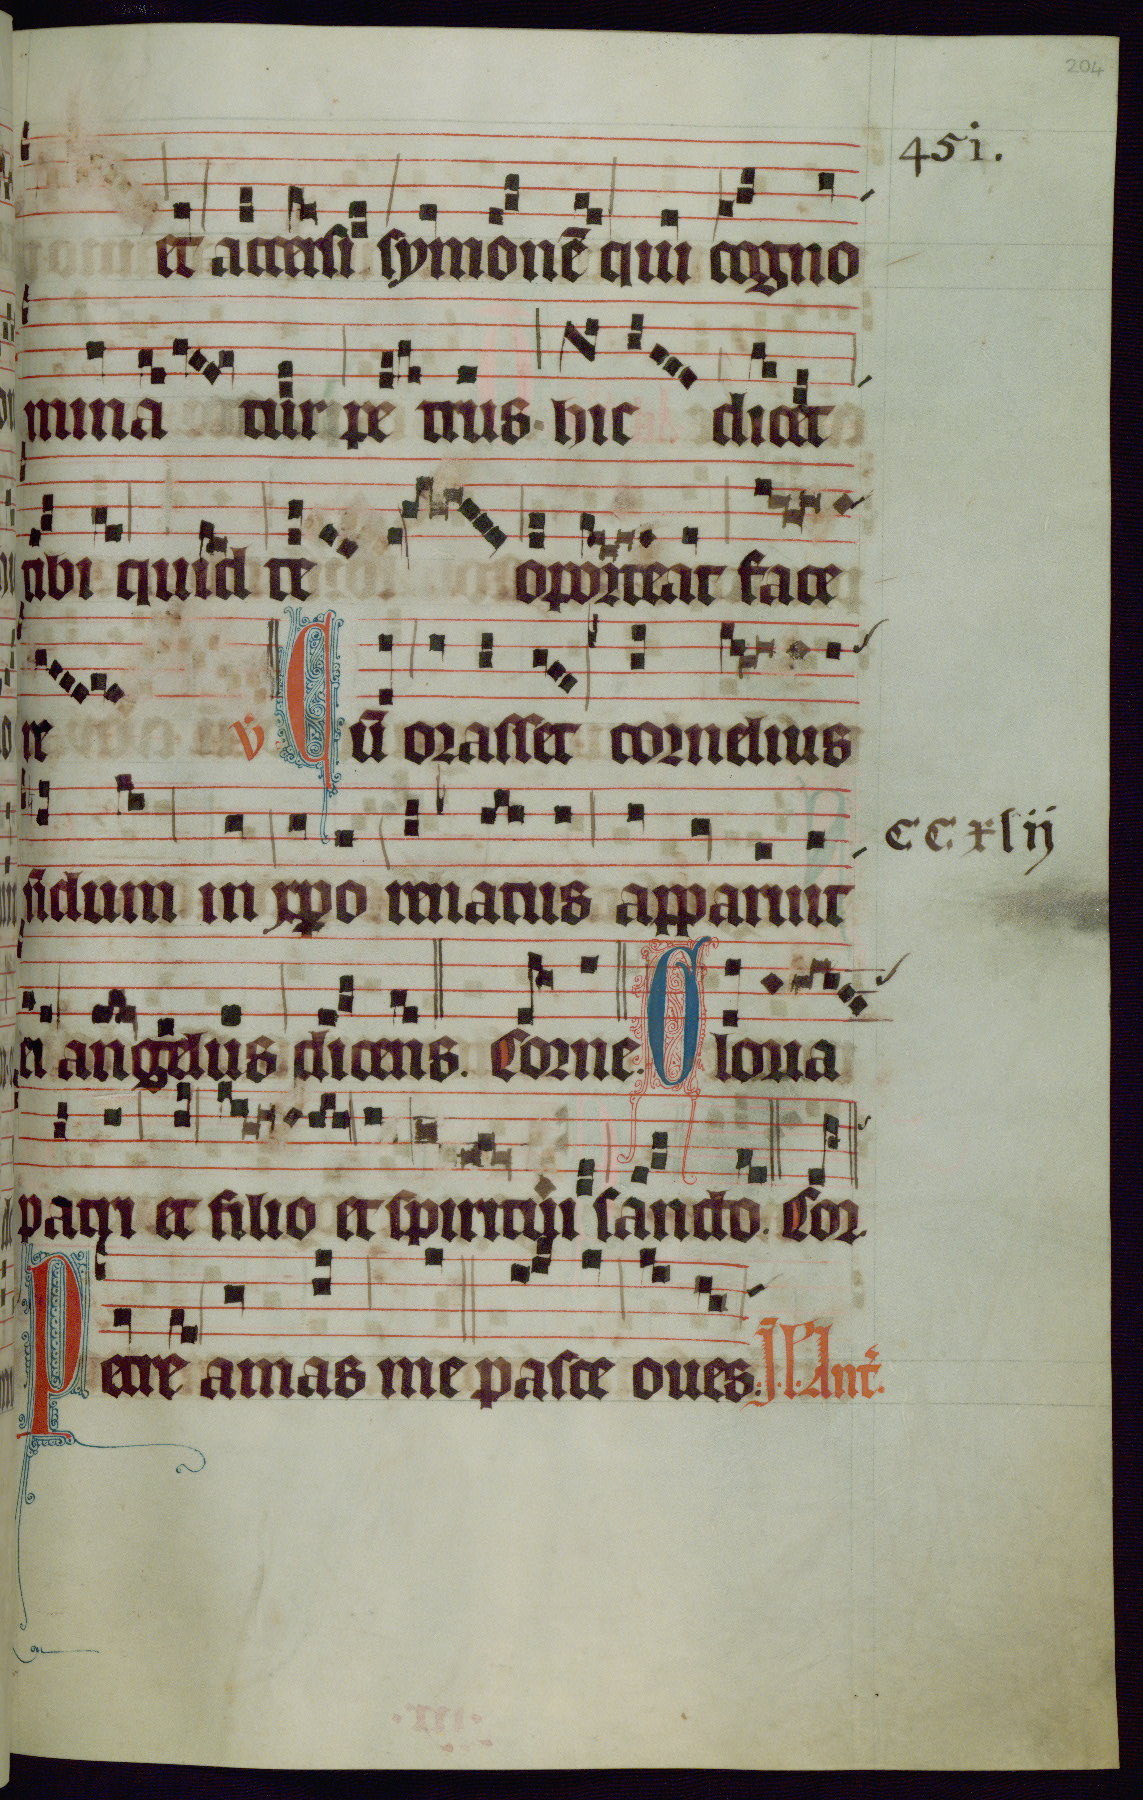 204
451.
et accersi symonē qui cogno
mina tur pe trus. hic dicet
tibi quid te oporteat face
re v̄ Cū orasset cornelius
n̄dum in xp̄o renatus apparuit
ei angelus dicens. Corne. Gloria
patri et filio et spiritui sancto. Cor.
CCxlij
Petre amas me pasce oues. Ant̄.